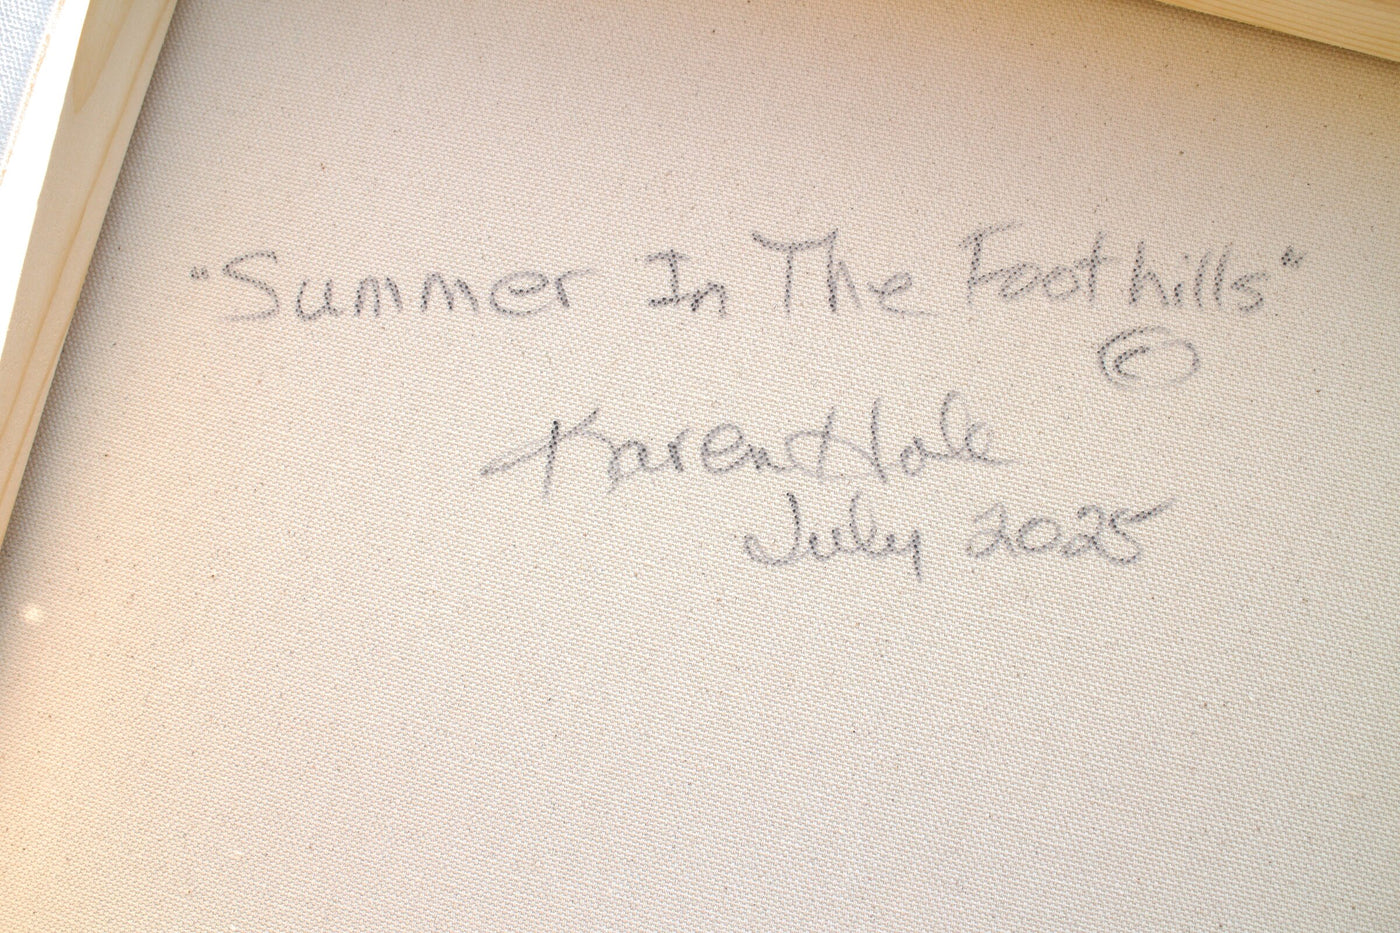 "Summer In The Foothills"
©
Karen Hale
July 2025